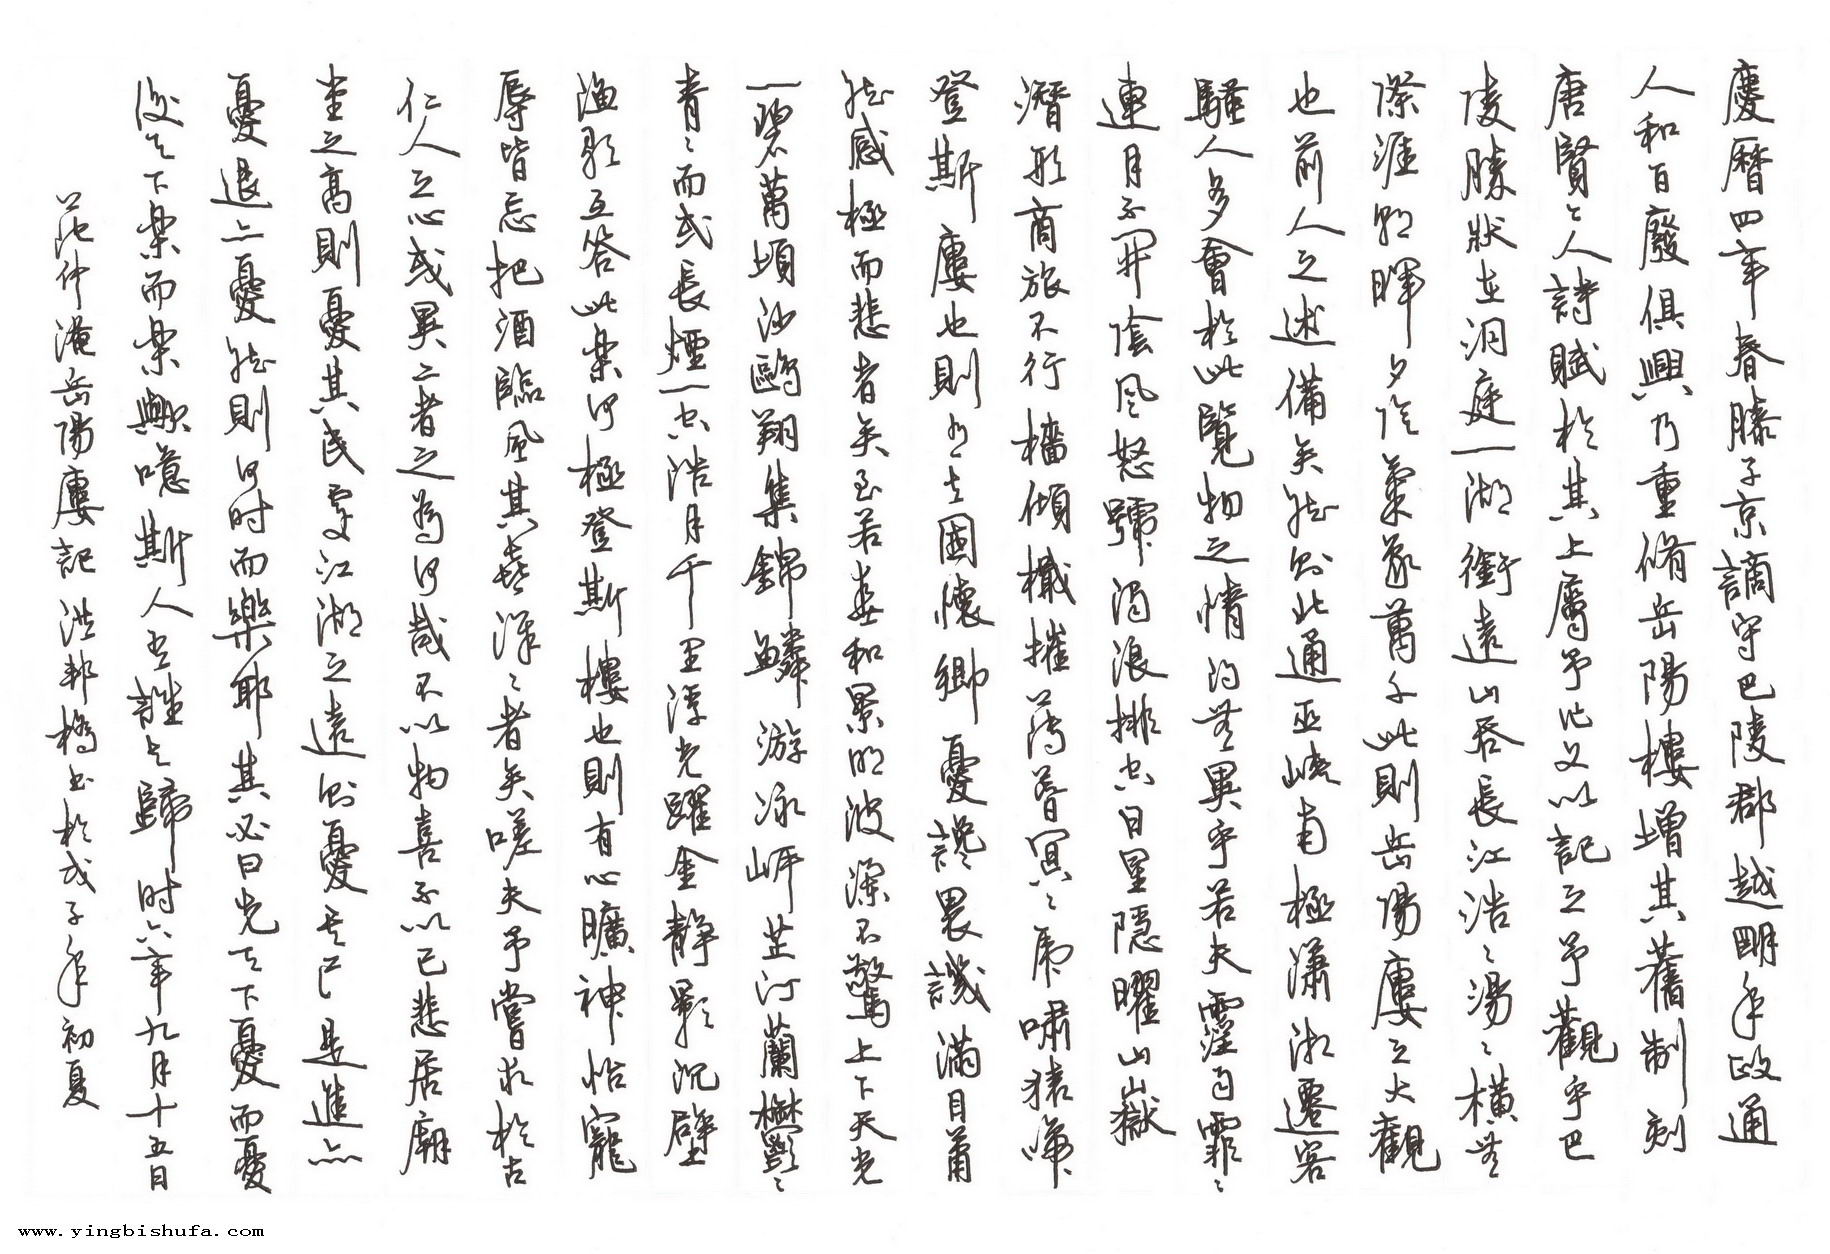 慶曆四年春滕子京謫守巴陵郡越明年政通
人和百廢俱興乃重脩岳陽樓增其舊制刻
唐賢々人詩賦於其上屬予作文以記之予觀乎巴
陵勝狀在洞庭一湖銜遠山吞長江浩々湯々橫無
際涯朝暉夕陰氣象萬千此則岳陽樓之大觀
也前人之述備矣然則北通巫峽南極瀟湘遷客
騷人多會於此覽物之情得無異乎若夫霪雨霏々
連月不開陰風怒號濁浪排空日星隱曜山嶽
潛形商旅不行檣傾楫摧薄暮冥々虎嘯猿啼
登斯樓也則有去國懷鄉憂讒畏譏滿目蕭
然感極而悲者矣至若春和景明波瀾不驚上下天光
一碧萬頃沙鷗翔集錦鱗游泳岸芷汀蘭鬱々
青々而或長煙一空皓月千里浮光躍金靜影沉璧
漁歌互答此樂何極登斯樓也則有心曠神怡寵
辱皆忘把酒臨風其喜洋々者矣嗟夫予嘗求於古
仁人之心或異二者之為何哉不以物喜不以己悲居廟
堂之高則憂其民處江湖之遠則憂其君是進亦
憂退亦憂然則何时而樂耶其必曰先天下憂而憂
後天下樂而樂歟噫斯人吾誰與歸时六年九月十五日
范仲淹岳陽樓記洪邦橋書於戊子年初夏
www.yingbishufa.com